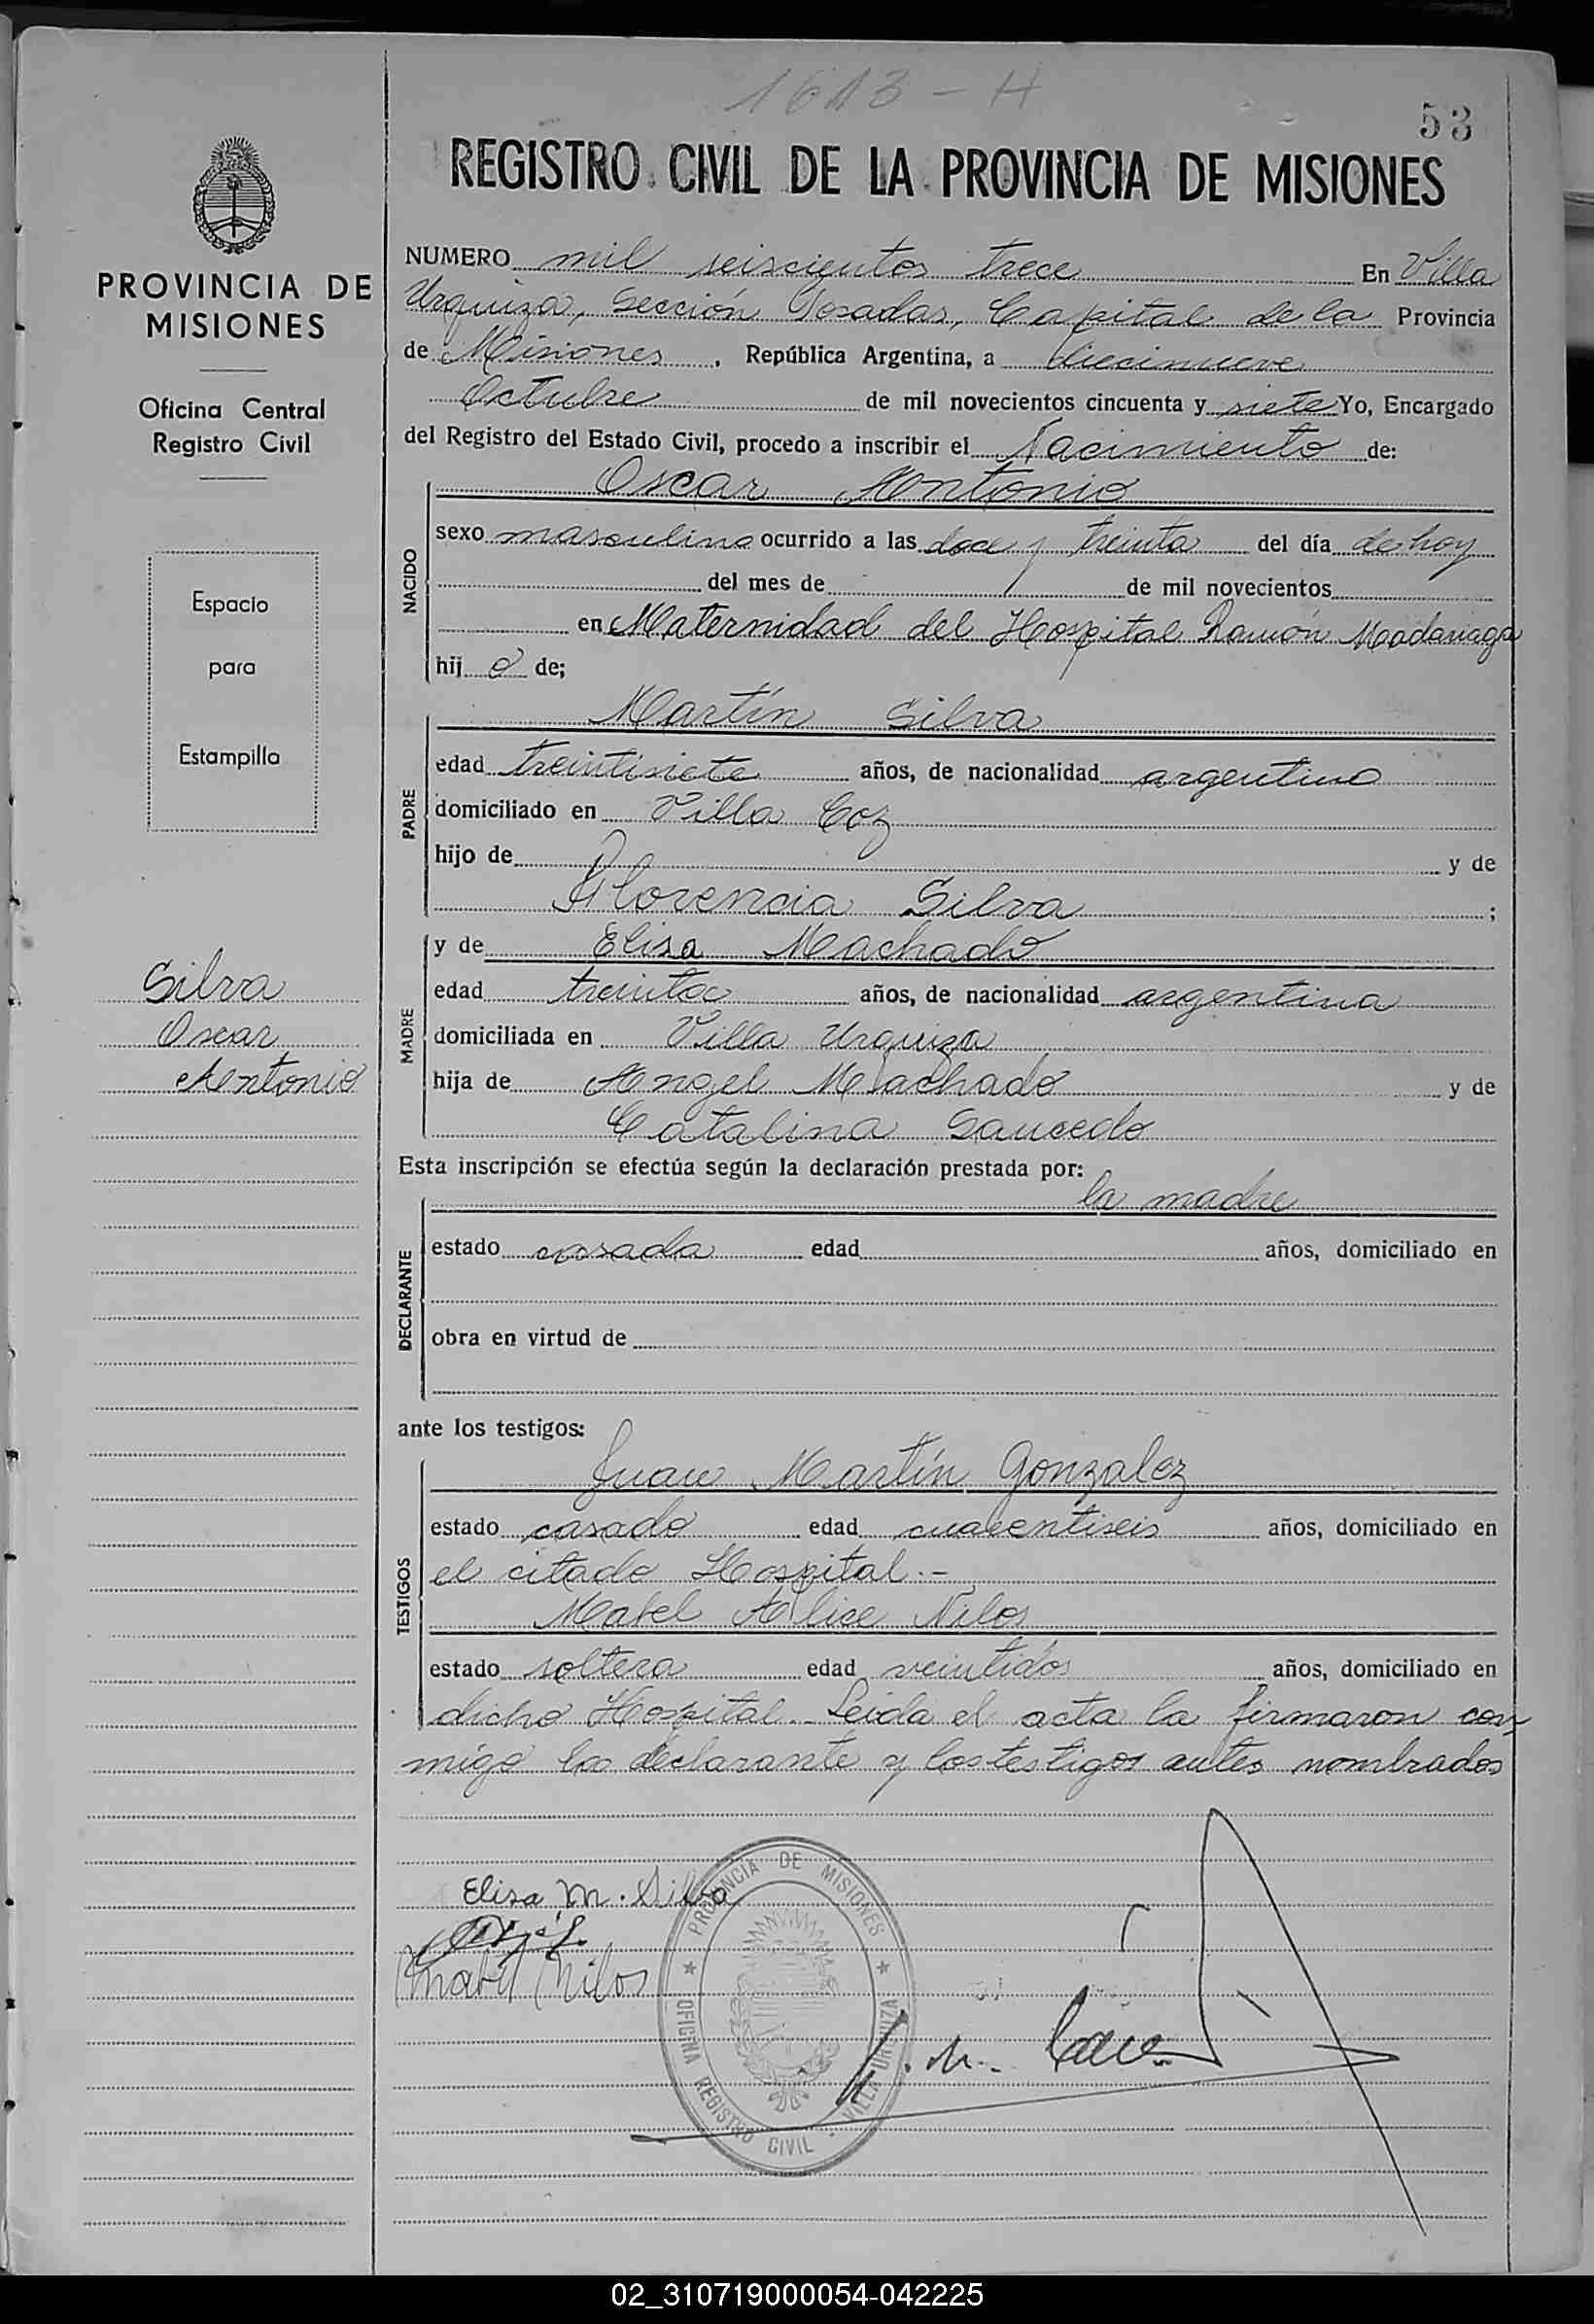 1613 - H
53
REGISTRO CIVIL DE LA PROVINCIA DE MISIONES
PROVINCIA DE
MISIONES
Oficina Central
Registro Civil
Espacio
para
Estampilla
Silva
Oscar
Antonio
NUMERO mil seiscientos trece En Villa
Urquiza, Sección Posadas, Capital de la Provincia
de Misiones, República Argentina, a diecinueve
Octubre de mil novecientos cincuenta y siete Yo, Encargado
del Registro del Estado Civil, procedo a inscribir el Nacimiento de:
Oscar Antonio
NACIDO
sexo masculino ocurrido a las doce y treinta del día de hoy
del mes de de mil novecientos
en Maternidad del Hospital Ramón Madariaga
hij o de;
Martín Silva
PADRE
edad treintisiete años, de nacionalidad argentino
domiciliado en Villa Coz
hijo de y de
Florencia Silva ;
y de Elisa Machado
MADRE
edad treinta años, de nacionalidad argentina
domiciliada en Villa Urquiza
hija de Angel Machado y de
Catalina Saucedo
Esta inscripción se efectúa según la declaración prestada por:
la madre
DECLARANTE
estado casada edad años, domiciliado en
obra en virtud de
ante los testigos:
Juan Martín Gonzalez
TESTIGOS
estado casado edad cuarentiseis años, domiciliado en
el citado Hospital.-
Mabel Alice Nilos
estado soltera edad veintidos años, domiciliado en
dicho Hospital.- Leida el acta la firmaron con
migo la declarante y los testigos antes nombrados
Elisa M. Silva
Mabel Nilos
PROVINCIA DE MISIONES
OFICINA REGISTRO CIVIL - VILLA URQUIZA
02_310719000054-042225